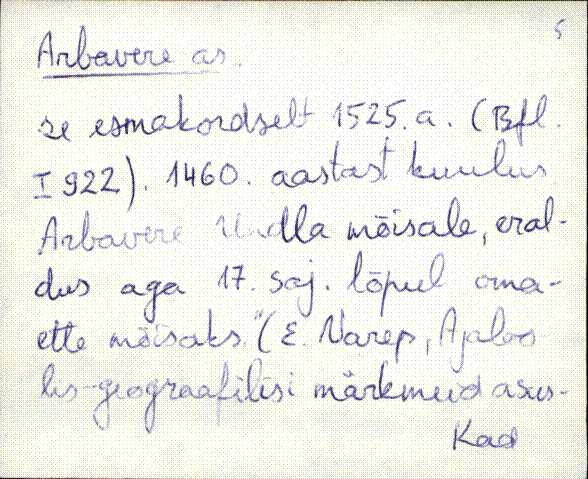 5
Arbavere as.
se esmakordselt 1525.a. (Bfl.
I 922). 1460. aastast kuulus
Arbavere Undla mõisale, eral-
dus aga 17. saj. lõpul oma-
ette mõisaks." (E. Varep, Ajaloo
lis-geograafilisi märkmeid asus-
Kad